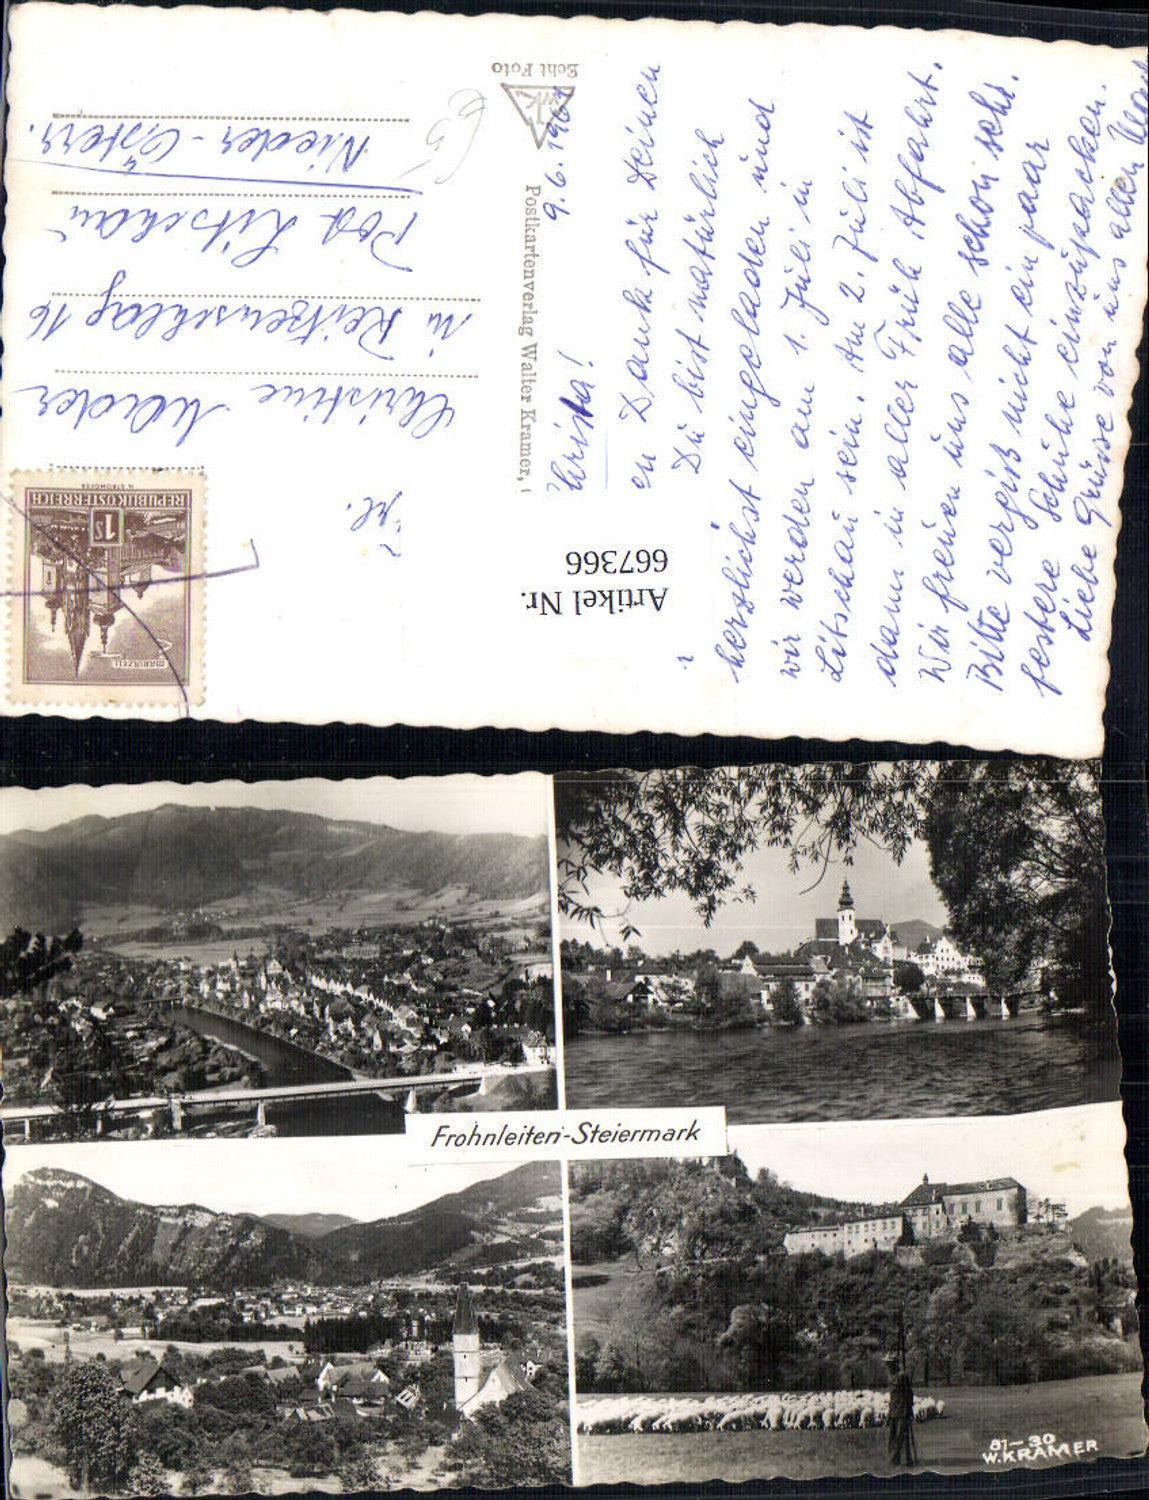 9.6.1961
Christa!
en Dank für Deinen
Du bist natürlich
herzlichst eingeladen und
wir werden am 1. Juli in
Litschau sein. Am 2. Juli ist
dann in aller Früh Abfahrt.
Wir freuen uns alle schon sehr.
Bitte vergiß nicht ein paar
festere Schuhe einzupacken.
Liebe Grüsse von uns allen
Echt Foto
WK
Postkartenverlag Walter Kramer,
Frl.
Christine
in Reitzenschlag 16
Post Litschau
Nieder-Österr.
65
REPUBLIK ÖSTERREICH
1S
MARIAZELL
Artikel Nr.
667366
Frohnleiten-Steiermark
81-30
W.KRAMER